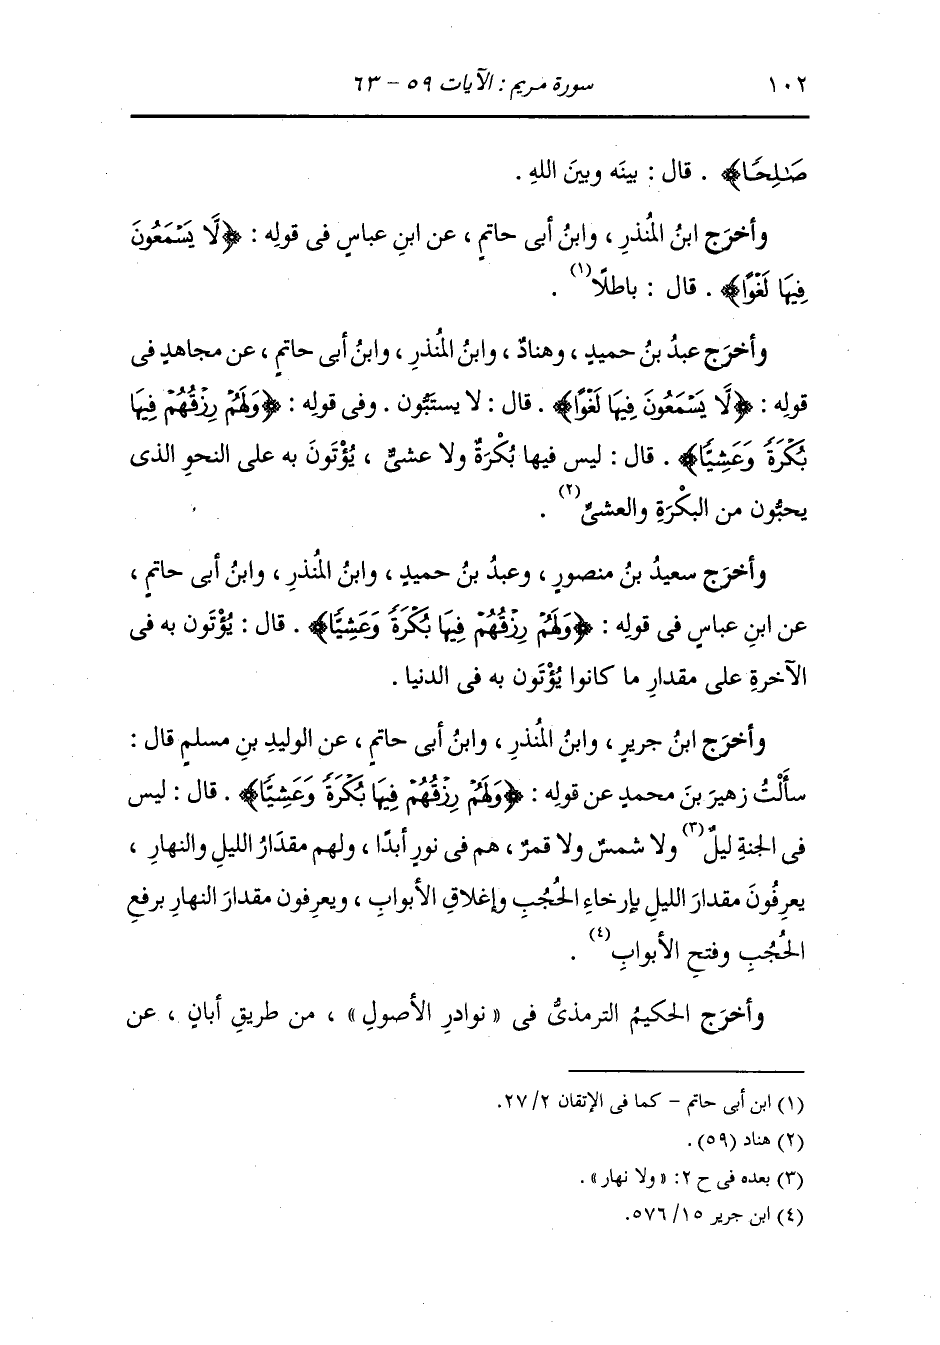 ١٠٢ سورة مريم : الآيات ٥٩ - ٦٣
صَٰلِحًا﴾ . قال : بينَه وبينَ اللهِ .
وأخرَج ابنُ المُنذرِ ، وابنُ أبى حاتمٍ ، عن ابنِ عباسٍ فى قولِه : ﴿لَّا يَسْمَعُونَ
فِيهَا لَغْوًا﴾ . قال : باطلًا(١) .
وأخرَج عبدُ بنُ حميدٍ ، وهنادٌ ، وابنُ المُنذرِ ، وابنُ أبى حاتمٍ ، عن مجاهدٍ فى
قولِه : ﴿لَّا يَسْمَعُونَ فِيهَا لَغْوًا﴾ . قال : لا يستَبُّون . وفى قولِه : ﴿وَلَهُمْ رِزْقُهُمْ فِيهَا
بُكْرَةً وَعَشِيًّا﴾ . قال : ليس فيها بُكْرَةٌ ولا عشىٌّ ، يُؤْتَونَ به على النحوِ الذى
يحبُّون من البكْرَةِ والعشىِّ(٢) .
وأخرَج سعيدُ بنُ منصورٍ ، وعبدُ بنُ حميدٍ ، وابنُ المُنذرِ ، وابنُ أبى حاتمٍ ،
عن ابنِ عباسٍ فى قولِه : ﴿وَلَهُمْ رِزْقُهُمْ فِيهَا بُكْرَةً وَعَشِيًّا﴾ . قال : يُؤْتَون به فى
الآخرةِ على مقدارِ ما كانوا يُؤْتَون به فى الدنيا .
وأخرَج ابنُ جريرٍ ، وابنُ المُنذرِ ، وابنُ أبى حاتمٍ ، عن الوليدِ بنِ مسلمٍ قال :
سأَلْتُ زهيرَ بنَ محمدٍ عن قولِه : ﴿وَلَهُمْ رِزْقُهُمْ فِيهَا بُكْرَةً وَعَشِيًّا﴾ . قال : ليس
فى الجنةِ ليلٌ(٣) ولا شمسٌ ولا قمرٌ ، هم فى نورٍ أبدًا ، ولهم مقدَارُ الليلِ والنهارِ ،
يعرِفُونَ مقدارَ الليلِ بإرخاءِ الحُجُبِ وإغلاقِ الأبوابِ ، ويعرِفون مقدارَ النهارِ برفعِ
الحُجُبِ وفتحِ الأبوابِ(٤) .
وأخرَج الحكيمُ الترمذىُّ فى « نوادرِ الأصولِ » ، من طريقِ أبانٍ ، عن
(١) ابن أبى حاتم - كما فى الإتقان ٢/ ٢٧.
(٢) هناد (٥٩) .
(٣) بعده فى ح ٢: « ولا نهار» .
(٤) ابن جرير ١٥/ ٥٧٦.